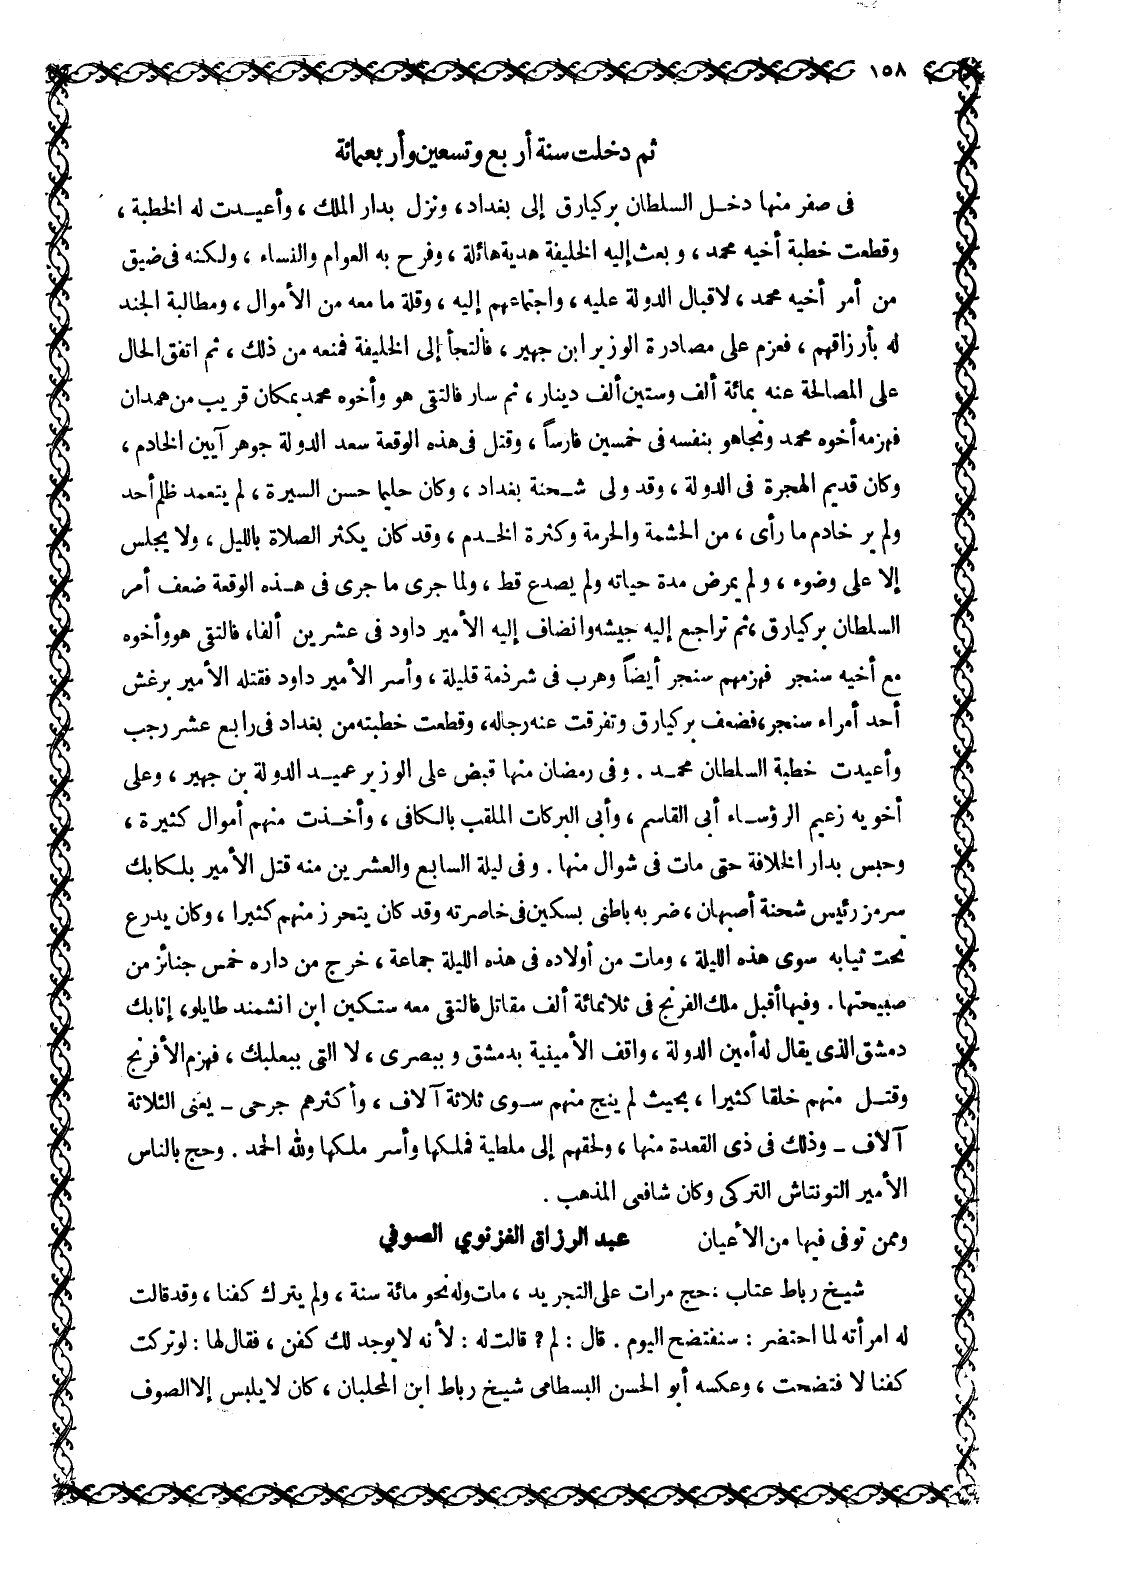 ١٥٨
ثم دخلت سنة أربع وتسعين وأربعمائة
فى صفر منها دخل السلطان بركيارق إلى بغداد، ونزل بدار الملك، وأعيدت له الخطبة،
وقطعت خطبة أخيه محمد، وبعث إليه الخليفة هدية هائلة، وفرح به العوام والنساء، ولكنه فى ضيق
من أمر أخيه محمد، لاقبال الدولة عليه، واجتماعهم إليه، وقلة ما معه من الأموال، ومطالبة الجند
له بأرزاقهم، فعزم على مصادرة الوزير ابن جهير، فالتجأ إلى الخليفة فمنعه من ذلك، ثم اتفق الحال
على المصالحة عنه بمائة ألف وستين ألف دينار، ثم سار فالتقى هو وأخوه محمد بمكان قريب من همدان
فهزمه أخوه محمد ونجاهو بنفسه فى خمسين فارساً، وقتل فى هذه الوقعة سعد الدولة جوهر آيين الخادم،
وكان قديم الهجرة فى الدولة، وقد ولى شحنة بغداد، وكان حليما حسن السيرة، لم يتعمد ظلم أحد
ولم ير خادم ما رأى، من الحشمة والحرمة وكثرة الخدم، وقد كان يكثر الصلاة بالليل، ولا يجلس
إلا على وضوء، ولم يمرض مدة حياته ولم يصدع قط، ولما جرى ما جرى فى هذه الوقعة ضعف أمر
السلطان بركيارق، ثم تراجع إليه جيشه وانضاف إليه الأمير داود فى عشرين ألفا، فالتقى هو وأخوه
مع أخيه سنجر فهزمهم سنجر أيضاً وهرب فى شرذمة قليلة، وأسر الأمير داود فقتله الأمير برغش
أحد أمراء سنجر، فضعف بركيارق وتفرقت عنه رجاله، وقطعت خطبته من بغداد فى رابع عشر رجب
وأعيدت خطبة السلطان محمد. وفى رمضان منها قبض على الوزير عميد الدولة بن جهير، وعلى
أخويه زعيم الرؤساء أبى القاسم، وأبى البركات الملقب بالكافى، وأخذت منهم أموال كثيرة،
وحبس بدار الخلافة حتى مات فى شوال منها. وفى ليلة السابع والعشرين منه قتل الأمير بلكابك
سرمز رئيس شحنة أصبهان، ضربه باطنى بسكين فى خاصرته وقد كان يتحرز منهم كثيرا، وكان يدرع
تحت ثيابه سوى هذه الليلة، ومات من أولاده فى هذه الليلة جماعة، خرج من داره خمس جنائز من
صبيحتها. وفيها أقبل ملك الفرنج فى ثلاثمائة ألف مقاتل فالتقى معه ستكين ابن انشمند طايلو، إتابك
دمشق الذى يقال له أمين الدولة، واقف الأمينية بدمشق وببصرى، لا التى ببعلبك، فهزم الأفرنج
وقتل منهم خلقا كثيرا، بحيث لم ينج منهم سوى ثلاثة آلاف، وأكثرهم جرحى - يعنى الثلاثة
آلاف - وذلك فى ذى القعدة منها، ولحقهم إلى ملطية فملكها وأسر ملكها ولله الحمد. وحج بالناس
الأمير التونتاش التركى وكان شافعى المذهب.
وممن توفى فيها من الأعيان    عبد الرزاق الغزنوي الصوفي
شيخ رباط عتاب: حج مرات على التجريد، مات وله نحو مائة سنة، ولم يترك كفنا، وقد قالت
له امرأته لما احتضر: سنفتضح اليوم. قال: لم؟ قالت له: لأنه لا يوجد لك كفن، فقال لها: لو تركت
كفنا لافتضحت، وعكسه أبو الحسن البسطامى شيخ رباط ابن المحلبان، كان لا يلبس إلا الصوف